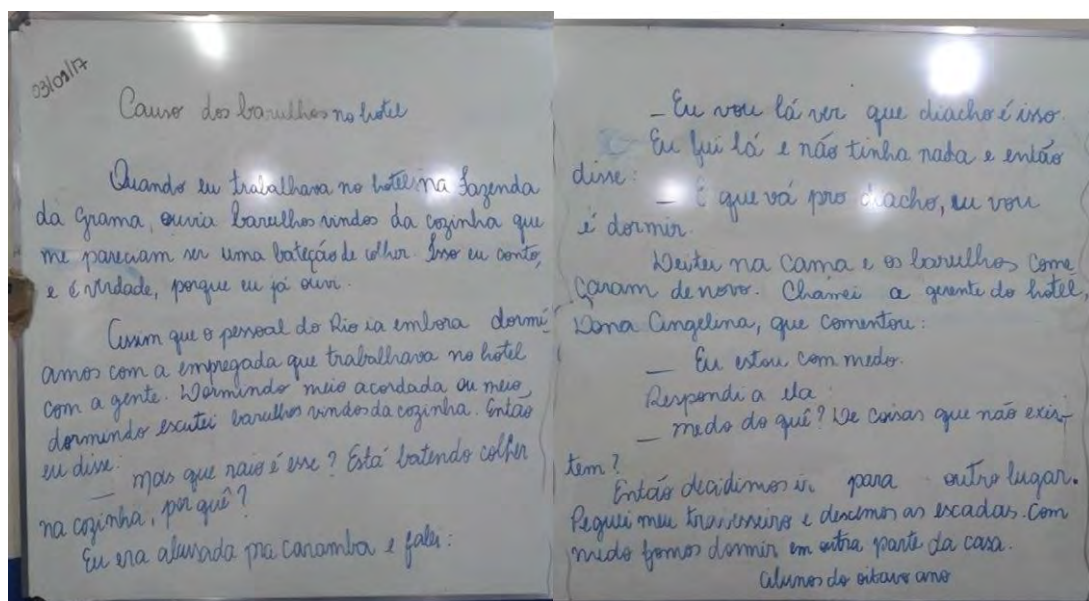 03/01/17
Causo dos barulhos no hotel
Quando eu trabalhava no hotel na Fazenda
da Grama, ouvia barulhos vindos da cozinha que
me pareciam ser uma bateção de colher. Isso eu conto,
e é verdade, porque eu já ouvi.
Assim que o pessoal do Rio ia embora dormí
amos com a empregada que trabalhava no hotel
com a gente. Dormindo meio acordada ou meio
dormindo escutei barulhos vindos da cozinha. Então
eu disse:
— mas que raio é esse? Está batendo colher
na cozinha, por quê?
Eu era abusada pra caramba e falei:
– Eu vou lá ver que diacho é isso.
Eu fui lá e não tinha nada e então
disse:
— E que vá pro diacho, eu vou
é dormir.
Deitei na cama e os barulhos come
çaram de novo. Chamei a gerente do hotel,
Dona Angelina, que comentou:
— Eu estou com medo.
Respondi a ela:
— medo do quê? De coisas que não exis-
tem?
Então decidimos ir para outro lugar.
Peguei meu travesseiro e descemos as escadas. Com
medo fomos dormir em outra parte da casa.
alunos do oitavo ano